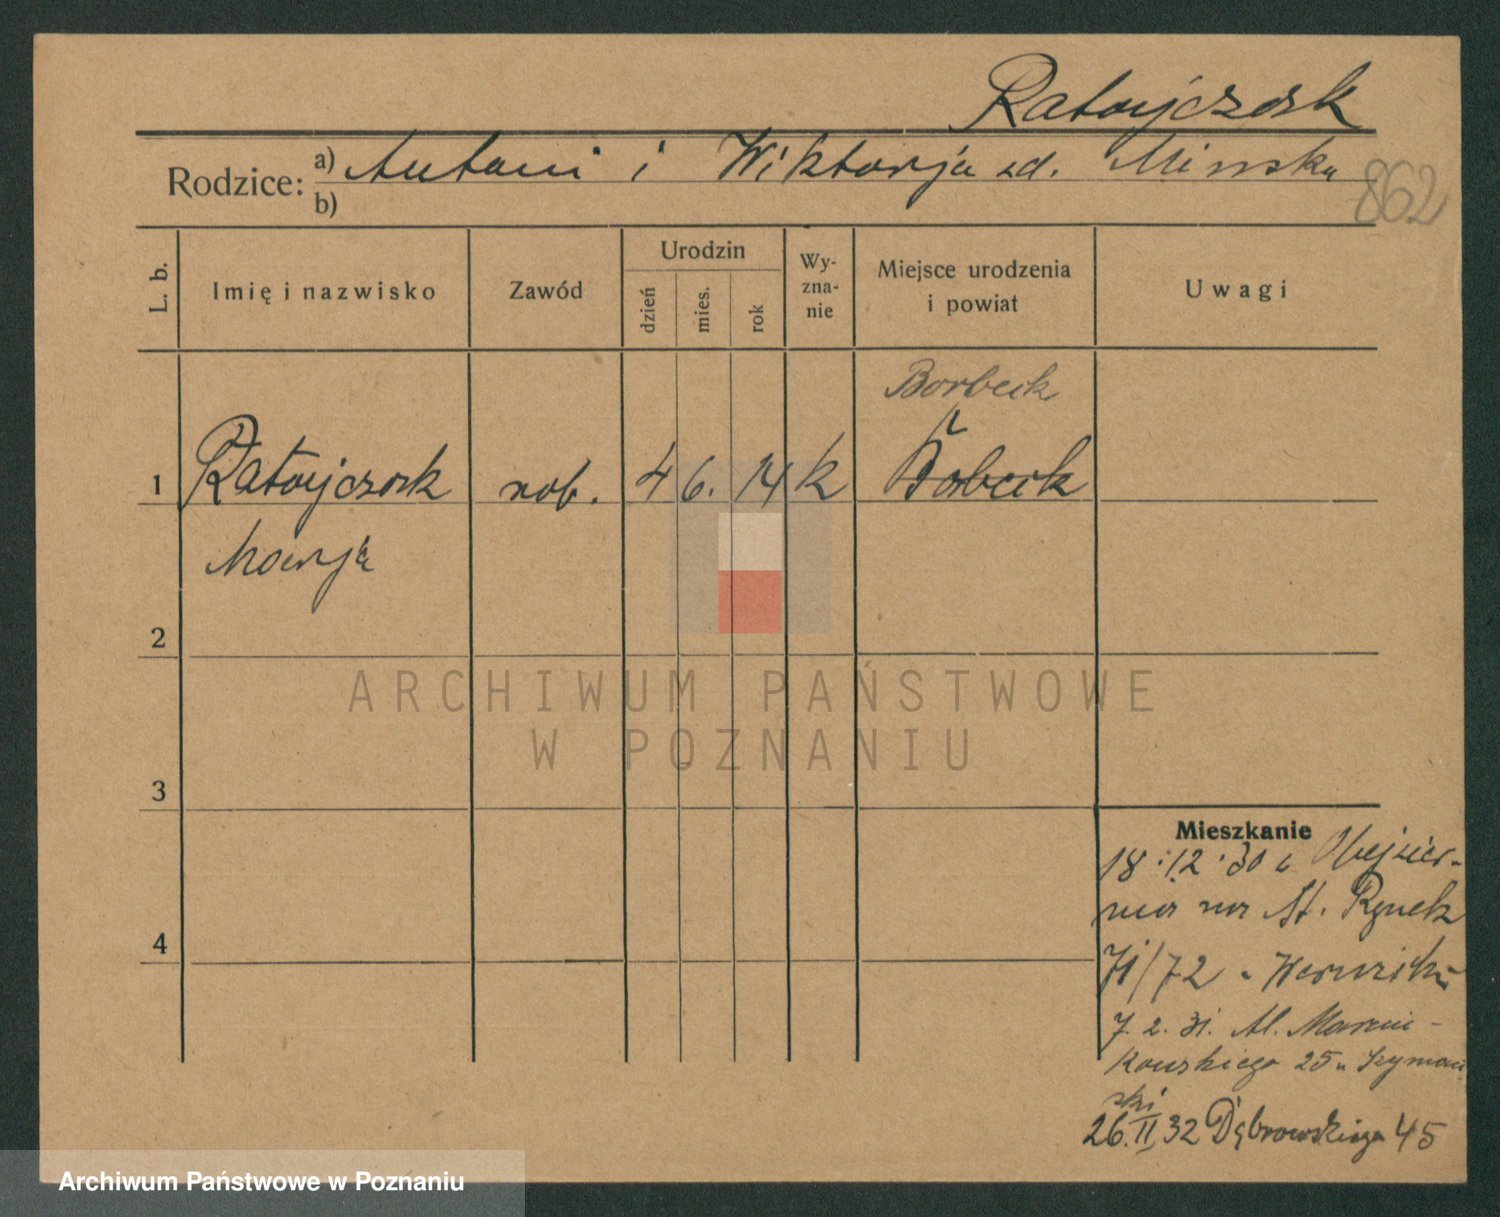 Ratajczak
Rodzice: a) Antoni i Wiktorja zd. Minska
b)
862
L. b.
Imię i nazwisko
Zawód
Urodzin
dzień
mies.
rok
Wy-
zna-
nie
Miejsce urodzenia
i powiat
Uwagi
Borbeck
1 Ratajczak rob. 4 6. 14 k Borbeck
Marja
2
ARCHIWUM PAŃSTWOWE
W POZNANIU
3
4
Mieszkanie
18.12.30
na St. Rynek
71/72
7. 2. 31. Al. Marcin-
kowskiego 25 u Szymań
ski
26.II.32 Dąbrowskiego 45
Archiwum Państwowe w Poznaniu